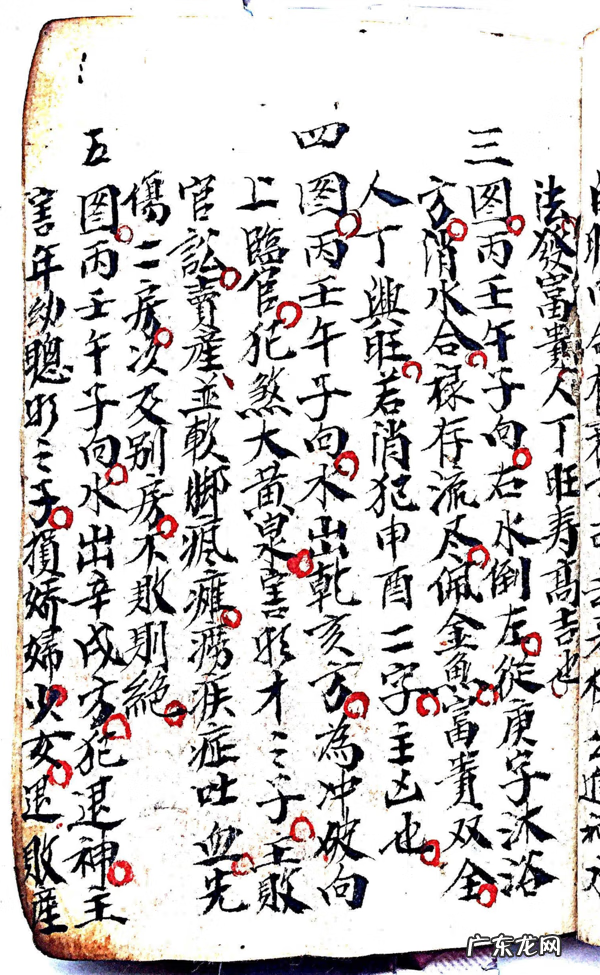 法發富貴人丁旺寿高吉也
三 図丙壬午子向右水倒左從庚字沐浴
方消水合禄存流尽佩金魚富貴双全
人丁興旺若消犯申酉二字主凶也
四 図丙壬午子向水出乾亥方為冲破向
上臨官犯煞大黄泉害才之子主敗
官訟賣產並軟脚瘋癱癆疾症吐血先
傷二房次及别房不敗則絶
五 図丙壬午子向水出辛戌方犯退神主
害年幼聰之子損嬌婦少女退敗產
广东龙网